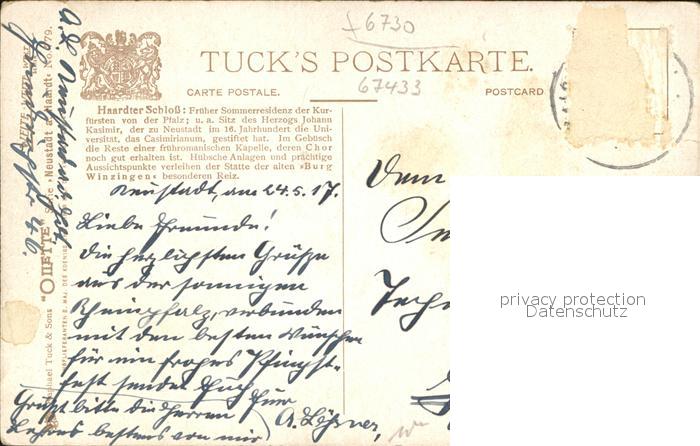 6730
67433
TUCK'S POSTKARTE.
CARTE POSTALE.
POSTCARD
Haardter Schloß: Früher Sommerresidenz der Kur-
fürsten von der Pfalz; u. a. Sitz des Herzogs Johann
Kasimir, der zu Neustadt im 16. Jahrhundert die Uni-
versität, das Casimirianum, gestiftet hat. Im Gebüsch
die Reste einer frühromanischen Kapelle, deren Chor
noch gut erhalten ist. Hübsche Anlagen und prächtige
Aussichtspunkte verleihen der Stätte der alten »Burg
Winzingen« besonderen Reiz.
Neustadt, am 24.5.17.
Liebe Freunde!
Die herzlichsten Grüße
aus der sonnigen
Rheinpfalz, verbunden
mit den besten Wünschen
für ein frohes Pfingst-
fest sendet Euch Euer
Grüßt bitte die Herren
Lehrer bestens von mir
A.
Dem
Raphael Tuck & Sons "OILETTE" Serie »Neustadt a. Haardt« No. 979.
privacy protection
Datenschutz